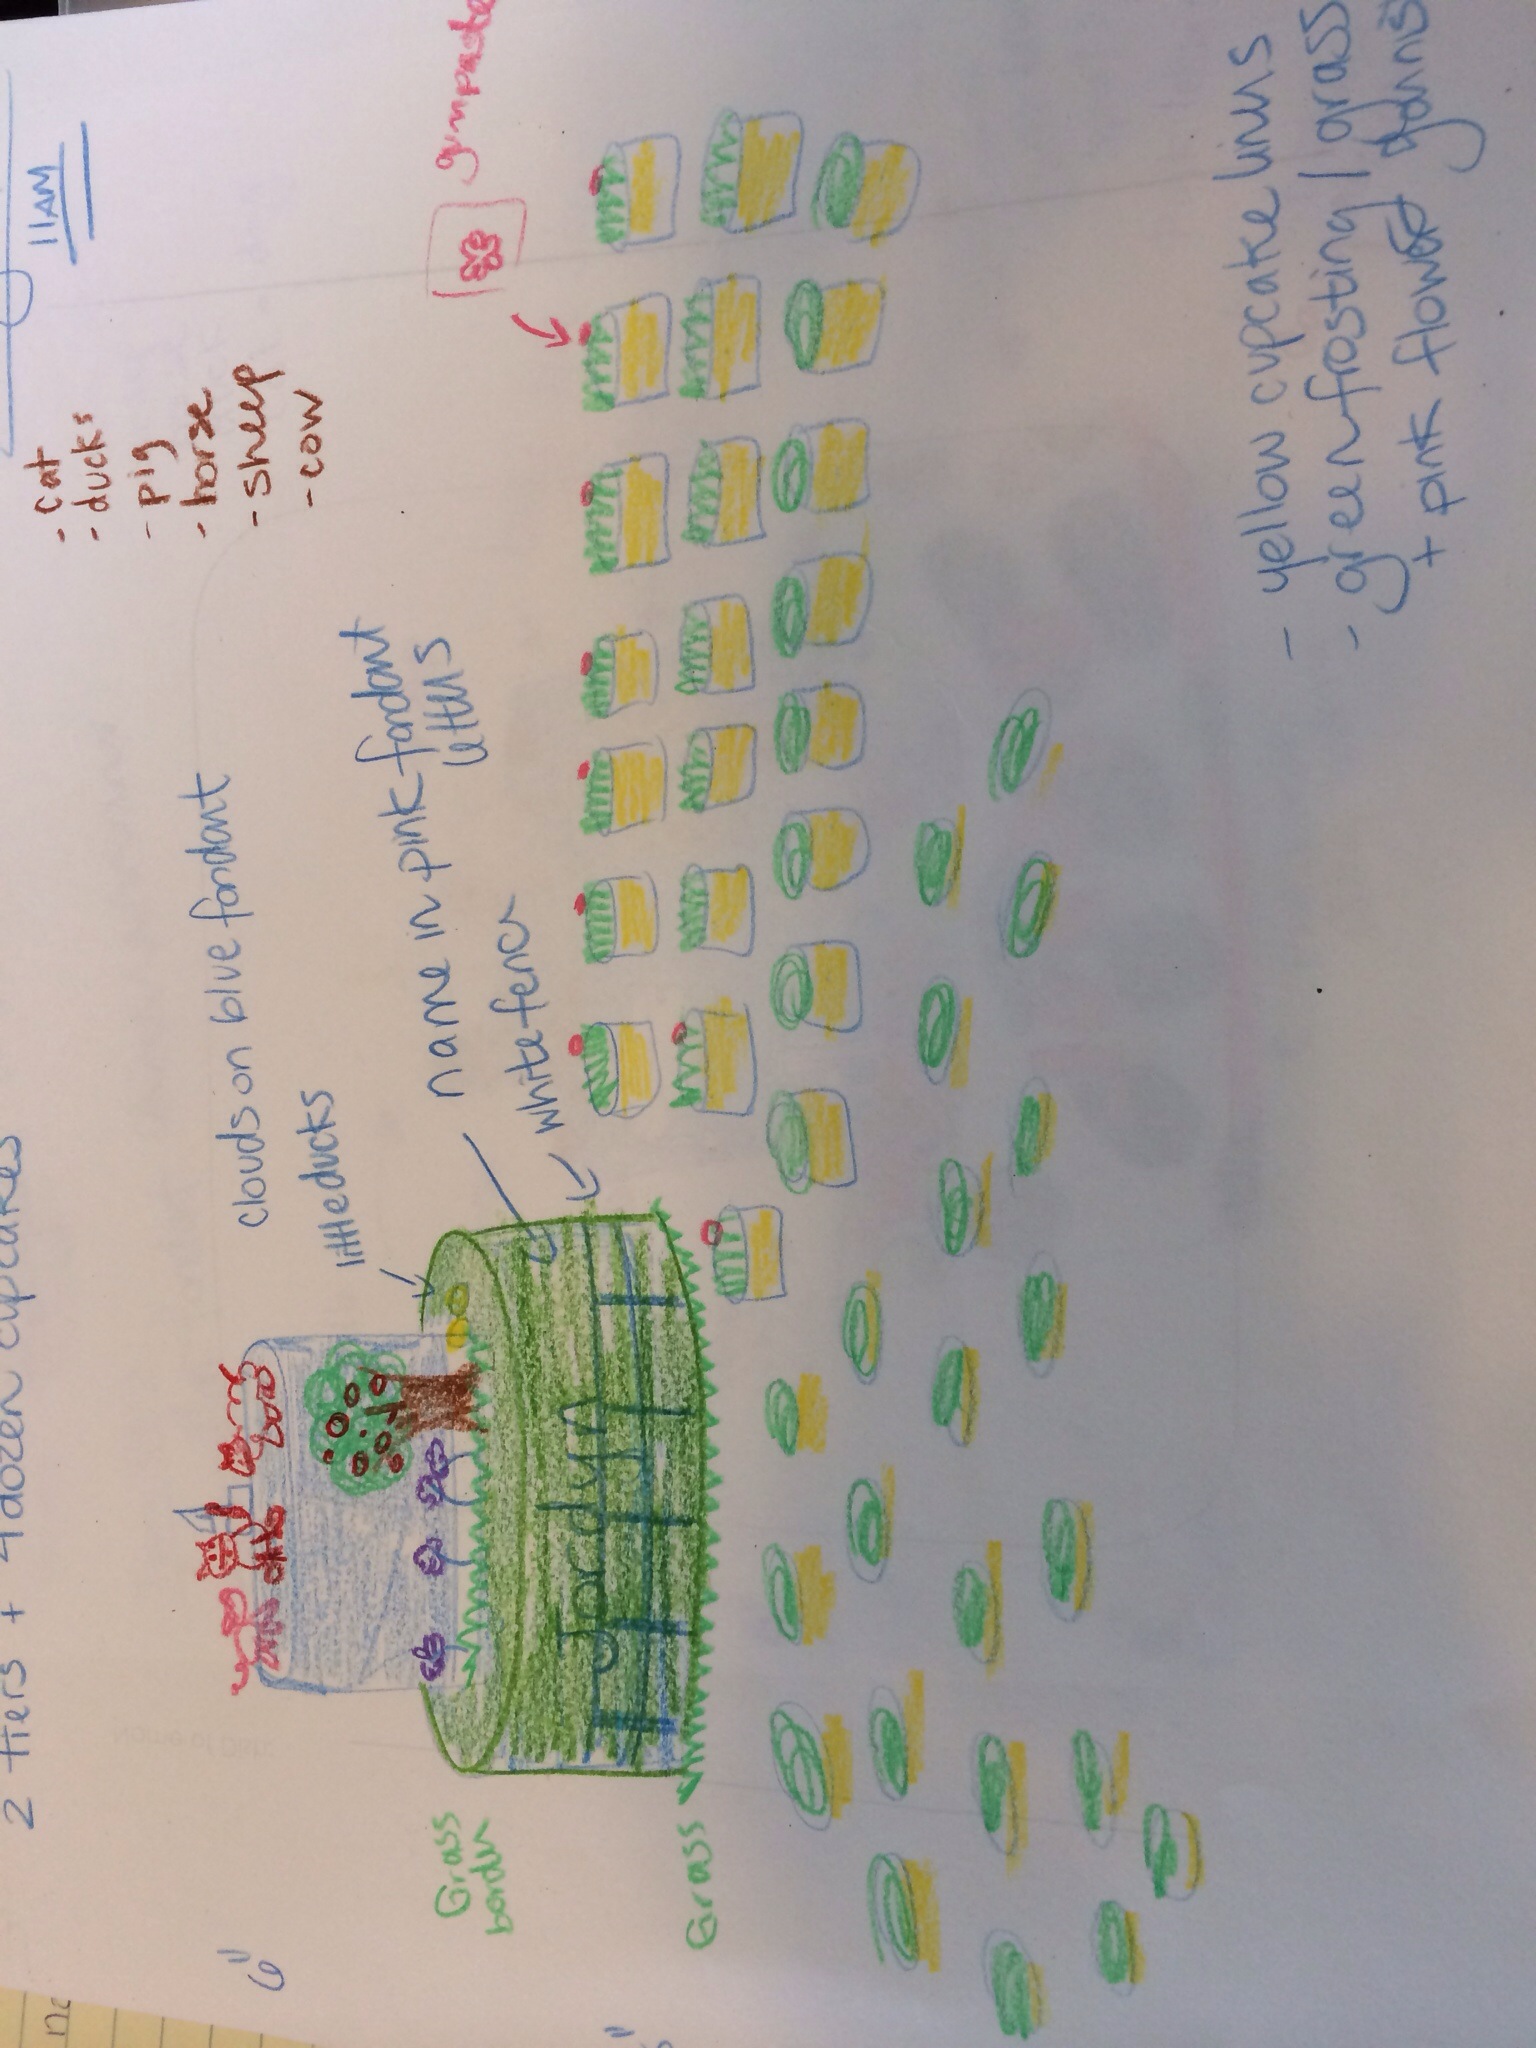 11AM
2 tiers + 4 dozen cupcakes
- cat
- ducks
- pig
- horse
- sheep
- cow
clouds on blue fondant
little ducks
name in pink fondant
letters
white fence
gumpaste
6"
Grass
border
Grass
Jordyn
- yellow cupcake liners
- green frosting / grass
+ pink flower garnish